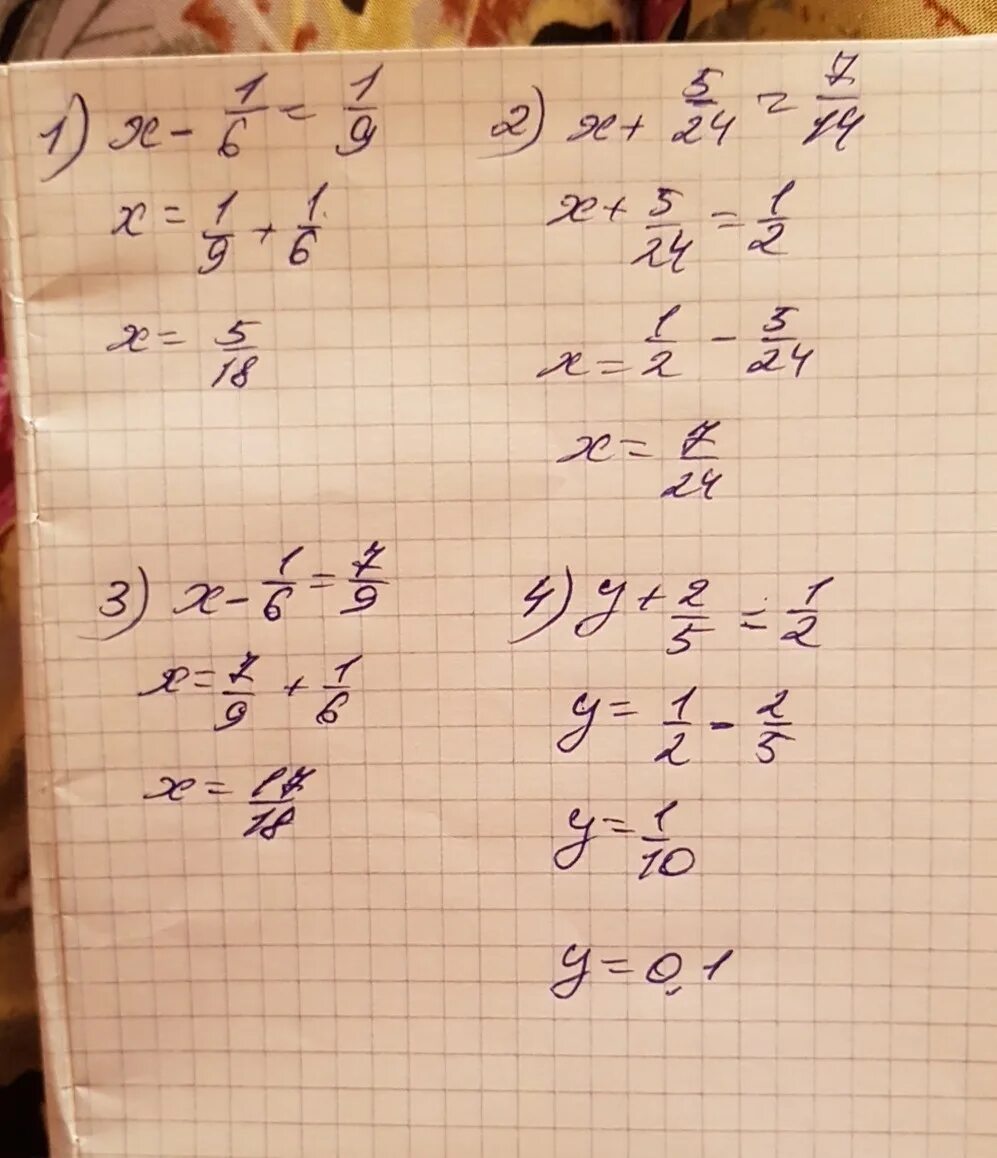 1) x - 1/6 = 1/9
x = 1/9 + 1/6
x = 5/18
2) x + 5/24 = 7/14
x + 5/24 = 1/2
x = 1/2 - 5/24
x = 7/24
3) x - 1/6 = 7/9
x = 7/9 + 1/6
x = 17/18
4) y + 2/5 = 1/2
y = 1/2 - 2/5
y = 1/10
y = 0,1